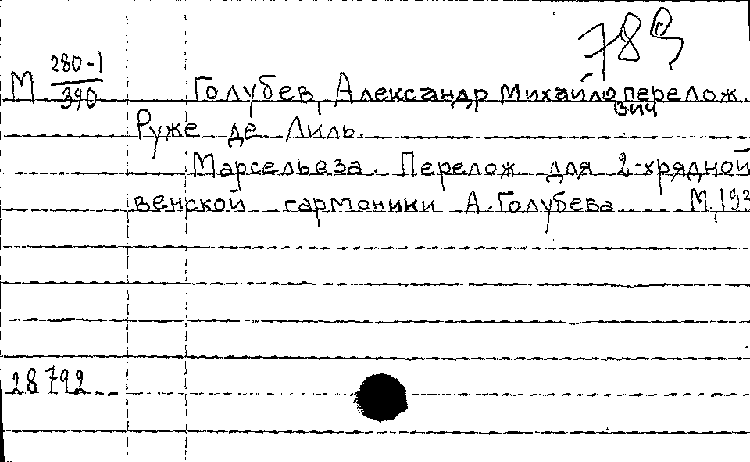 789
М 280-1/390 Голубев, Александр Михайлович перелож.
Руже де Лиль.
Марсельеза. Перелож для 2-хрядной
венской гармоники А. Голубева М, 193
28792